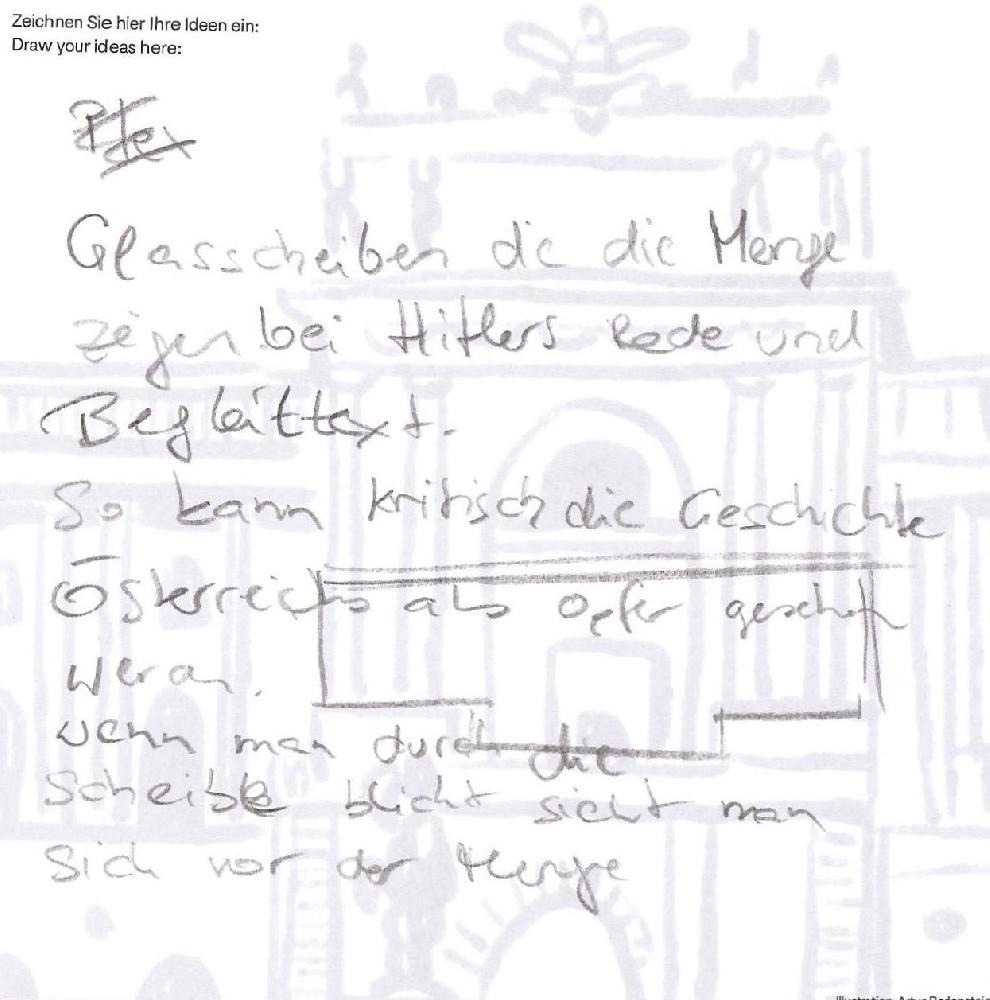 Zeichnen Sie hier Ihre Ideen ein:
Draw your ideas here:
Glasscheiben die die Menge
zeigen bei Hitlers Rede und
Begleittext.
So kann kritisch die Geschichte
Österreichs als Opfer gesehen
weran.
wenn man durch die
Scheible blickt sieht man
sich vor der Menge